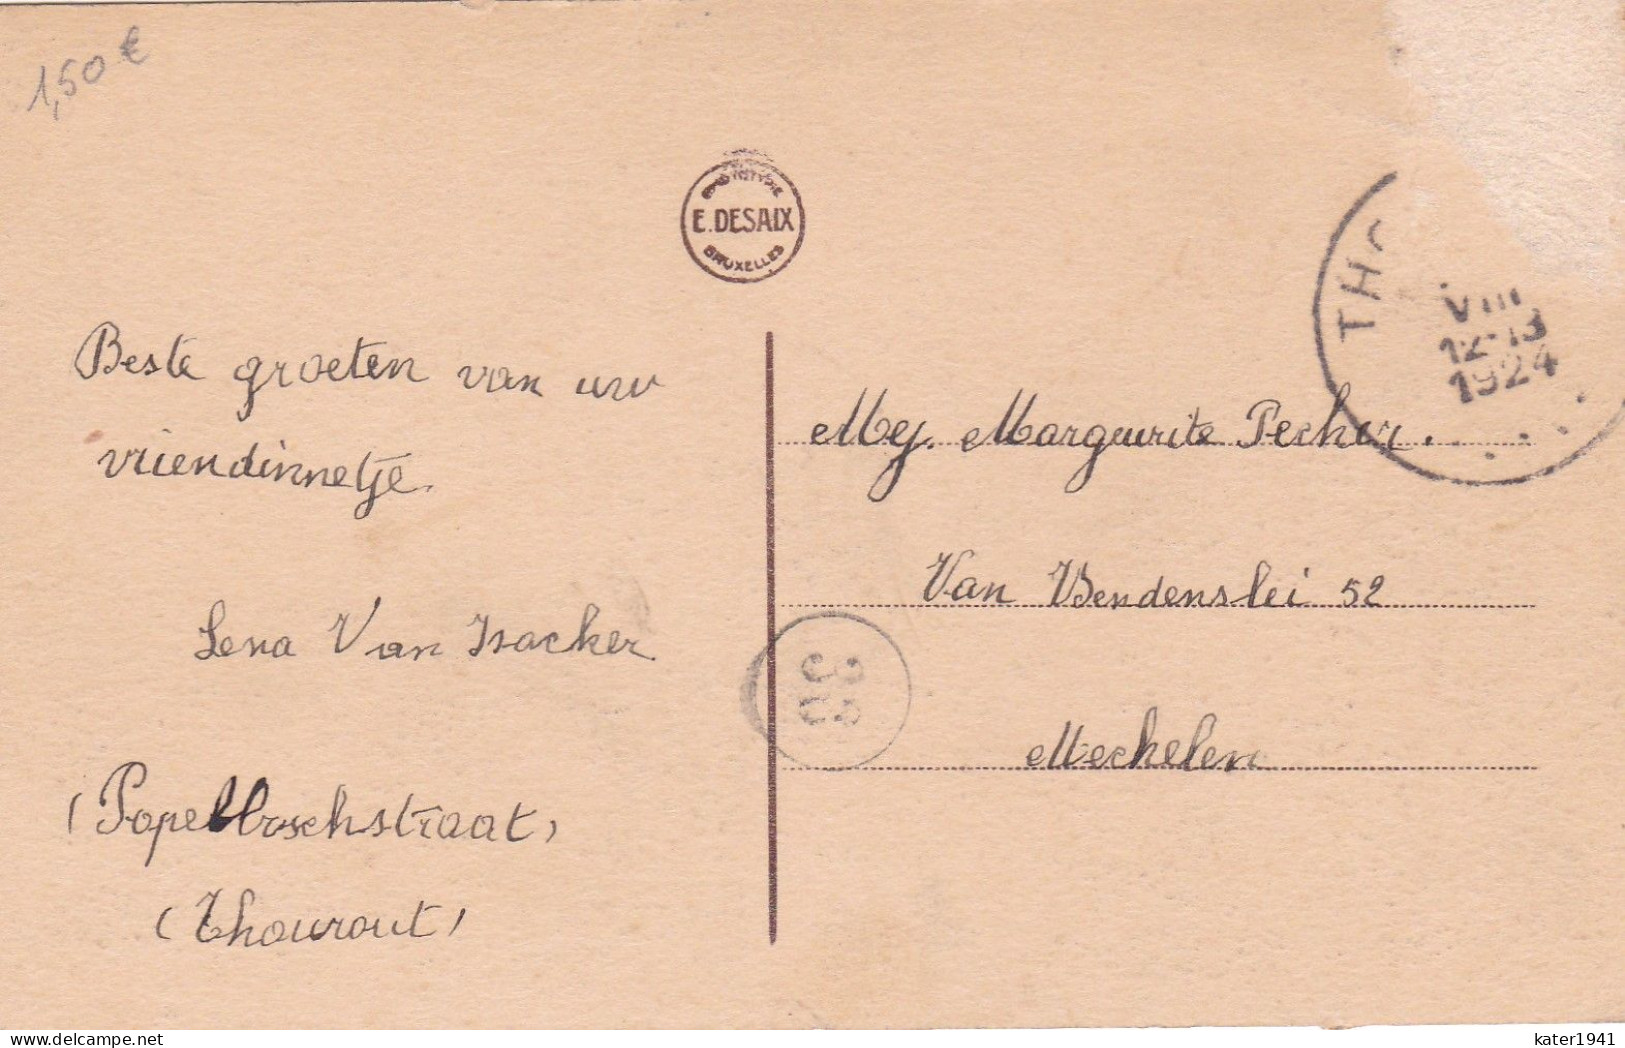 1,50 €
E. DESAIX
BRUXELLES
THO
VIII
12-13
1924
Beste groeten van uw
vriendinnetje.
Lena Van Isacker
(Popelboschstraat)
(Thourout)
Mej. Marguerite Pecher.
Van Bendenslei 52
Mechelen
kater1941